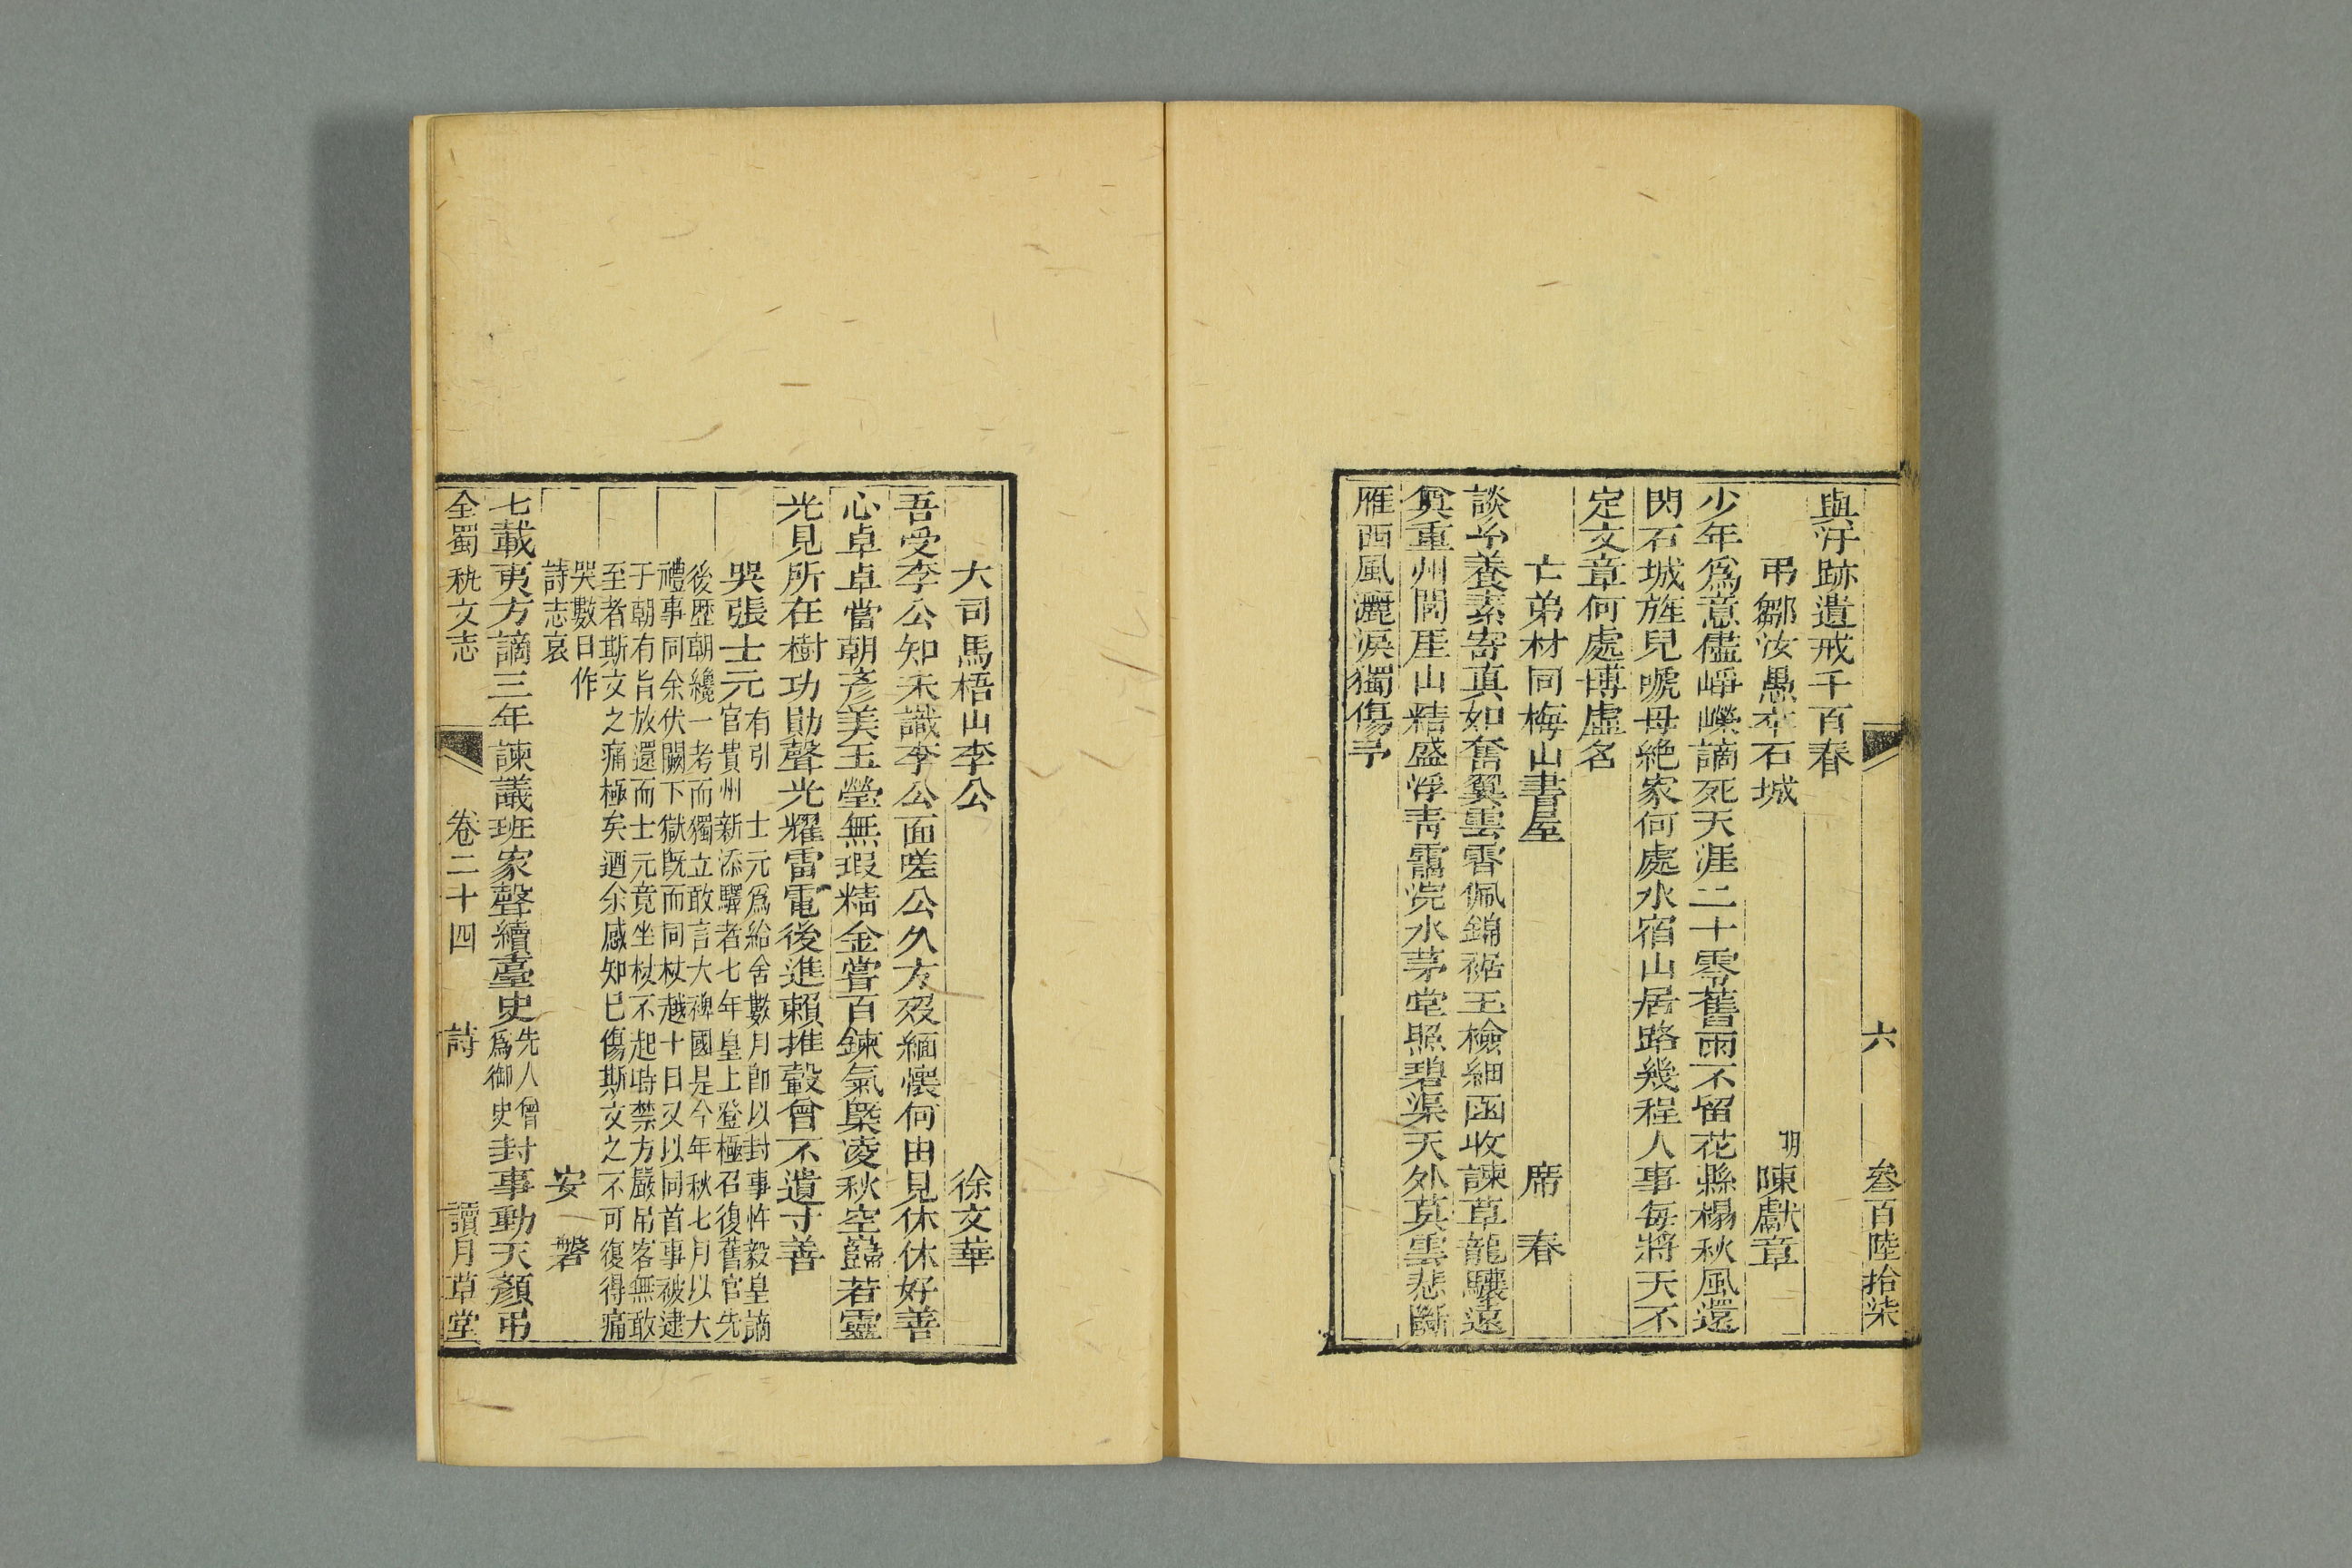 六　叁百陸拾柒
與汙跡遺戒千百春
弔鄒汝愚卒石城　明陳獻章
少年爲意儘崢嶸謫死天涯二十零舊雨不留花縣榻秋風還
閃石城旌兒號母絶家何處水宿山居路幾程人事每將天不
定文章何處博虛名
亡弟材同梅山書屋　席春
談予養素寄眞如奮翼雲霄佩錦裾玉檢細函收諫草龍驤遠
奠重州閭厓山精盛浮靑靄浣水茅堂照碧渠天外莫雲悲斷
雁西風灑淚獨傷予
大司馬梧山李公　徐文華
吾受李公知未識李公面嗟公久方歿緬懷何由見休休好善
心卓卓當朝彥美玉瑩無瑕精金嘗百鍊氣槩凌秋空巋若靈
光見所在樹功勛聲光耀雷電後進賴推轂曾不遺寸善
哭張士元有引　士元爲給舍數月卽以封事忤毅皇謫
官貴州新添驛者七年皇上登極召復舊官先
後歷朝纔一考而獨立敢言大裨國是今年秋七月以大
禮事同余伏闕下獄旣而同杖越十日又以同首事被逮
于朝有旨放還而士元竟坐杖不起時禁方嚴吊客無敢
至者斯文之痛極矣迺余感知已傷斯文之不可復得痛
哭數日作
詩志哀　安磐
七載夷方謫三年諫議班家聲續臺史先人曾爲御史封事動天顏弔
全蜀秇文志　卷二十四　詩　讀月草堂